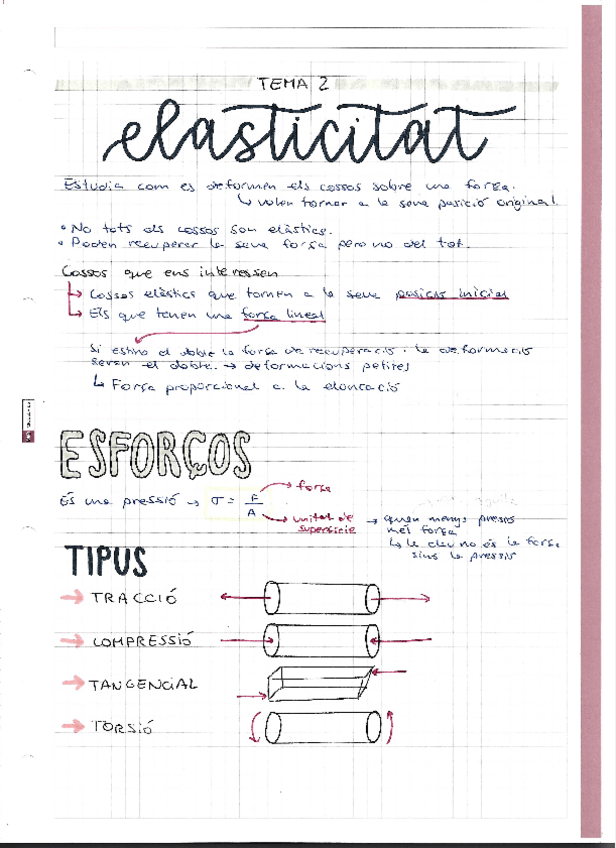 TEMA 2
elasticitat
Estudia com es deformen els cossos sobre una força.
↳ volen tornar a la seva posició original
• No tots els cossos son elàstics.
• Poden recuperar la seva força pero no del tot.
Cossos que ens interessen
↳ Cossos elàstics que tornen a la seva posicio inicial
↳ Els que tenen una força lineal
Si estiro el doble la força de recuperació i la deformació
seran el doble. → deformacions petites
↳ Força proporcional a la eloncació
ESFORÇOS
És una pressió → σ = F/A
→ força
→ unitat de superficie
→ quan menys pressio
més força
↳ la clau no és la força
sino la pressió
TIPUS
→ TRACCIÓ
→ COMPRESSIÓ
→ TANGENCIAL
→ TORSIÓ